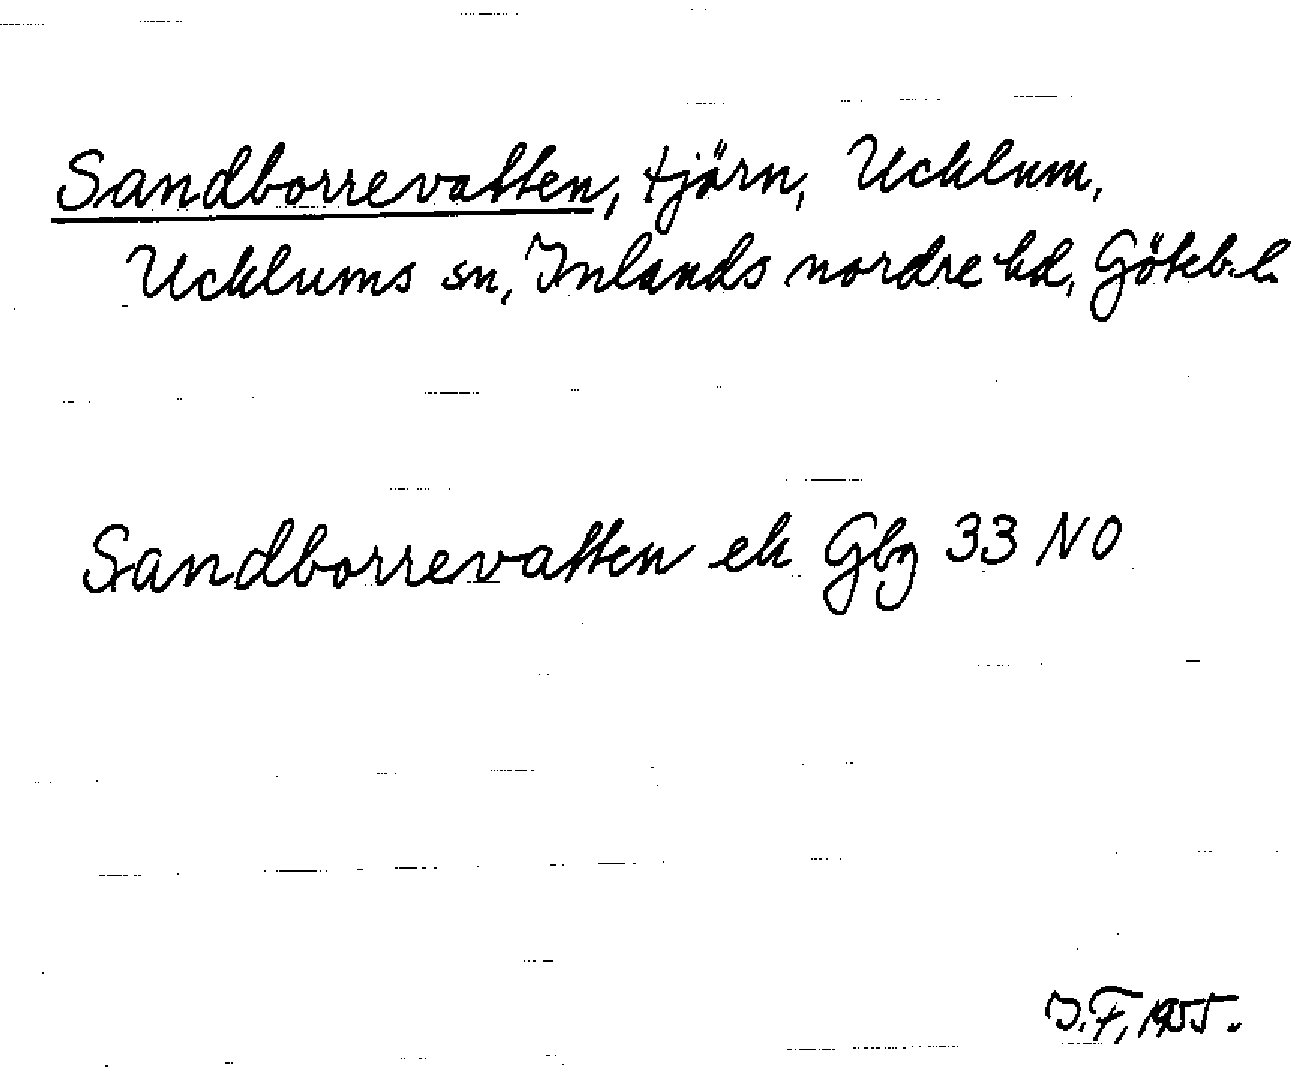 Sandborrevatten, tjörn, Ucklum,
Ucklums sn, Inlands nordre hd, Göteb. l.
Sandborrevatten ek Gbg 33 NO
I.F, 1955.